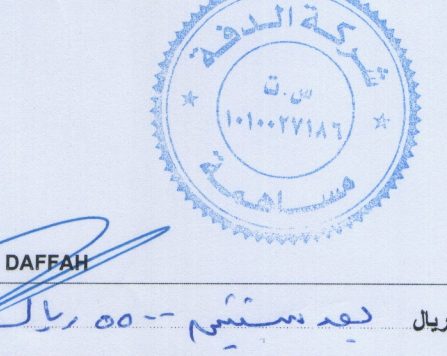 شركة الدفة
س.ت
١٠١٠٠٢٧١٨٦
مساهمة
DAFFAH
ريال بعد سنتين -- ٥٥ ريال